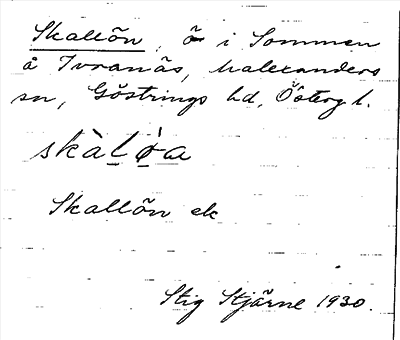 Skallön, ö i Sommen
å Tvranäs, Malexanders
sn, Göstrings hd, Östergl.
skàlǫ́a
Skallön ek
Stig Stjärne 1930.